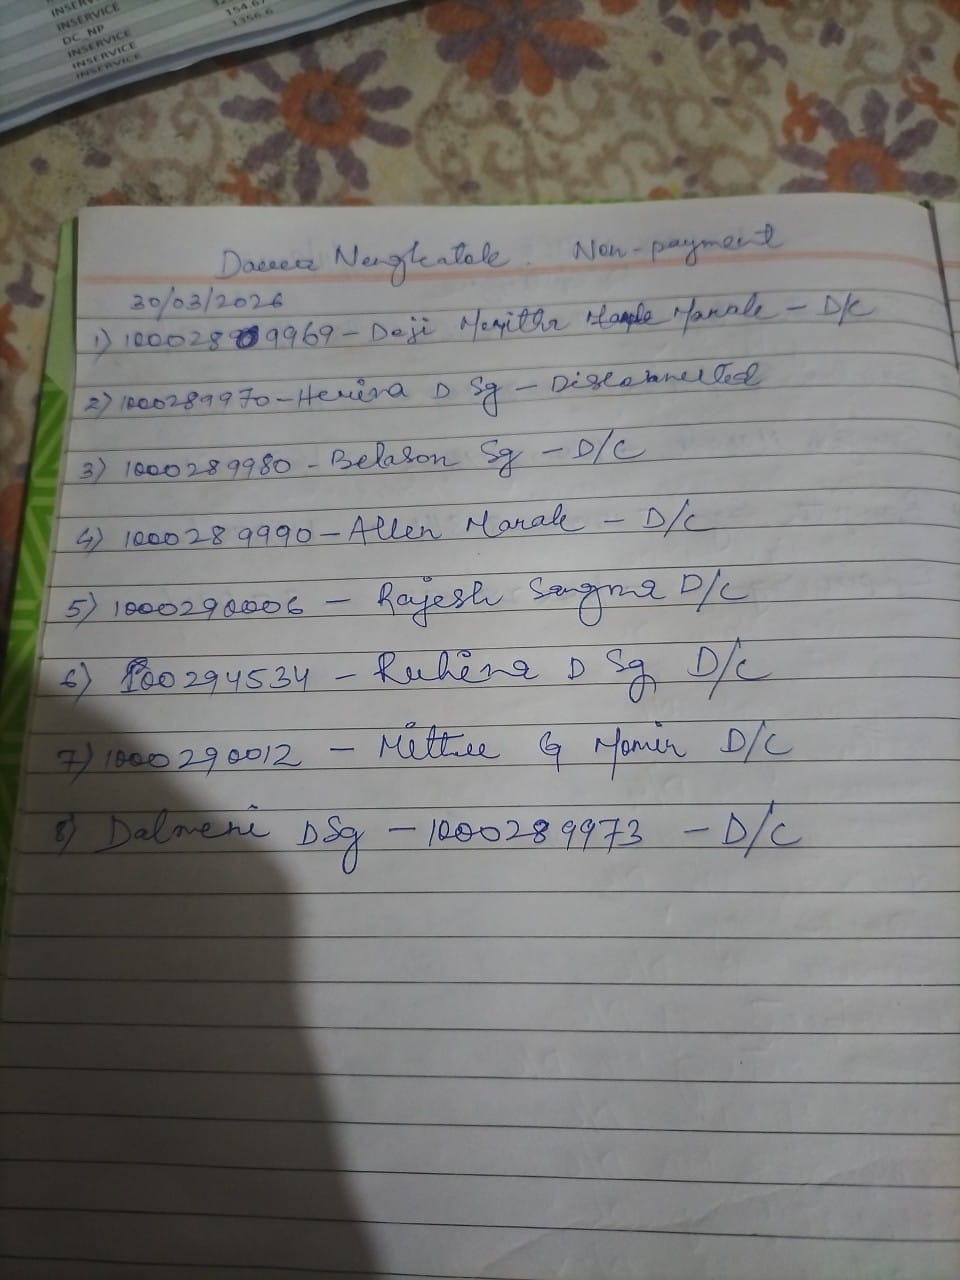 INSERVICE
INSERVICE
DC_NP
INSERVICE
INSERVICE
INSERVICE
154.67
1356.6
Dawa Nengkatok. Non-payment
30/03/2026
1) 1000289969 - Deji Marak - D/C
2) 1000289970 - Herina D Sg - Disconnected
3) 1000289980 - Belason Sg - D/C
4) 1000289990 - Allen Marak - D/C
5) 1000290006 - Rajesh Sangma D/C
6) 100294534 - Ruhina D Sg D/C
7) 1000290012 - G Momin D/C
8) Dalmeni D Sg - 1000289973 - D/C